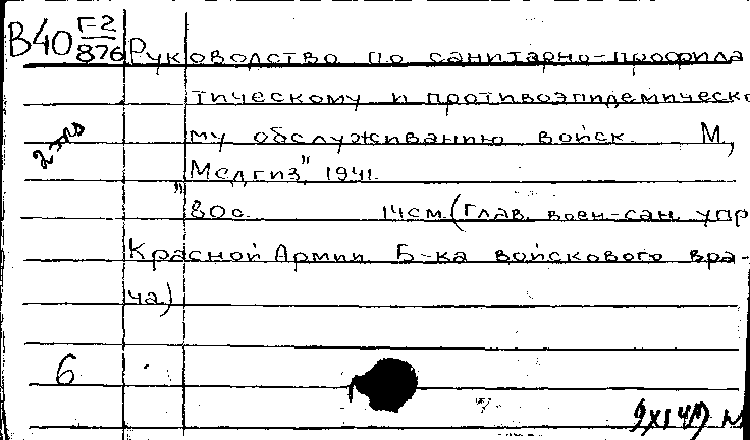 В40 Г-2
876 Руководство по санитарно-профила
тическому и противоэпидемическо
му обслуживанию войск. М,
2 экз
"Медгиз", 1941.
80с. 14см. (Глав. воен-сан. упр
Красной Армии. Б-ка войскового вра-
ча)
6